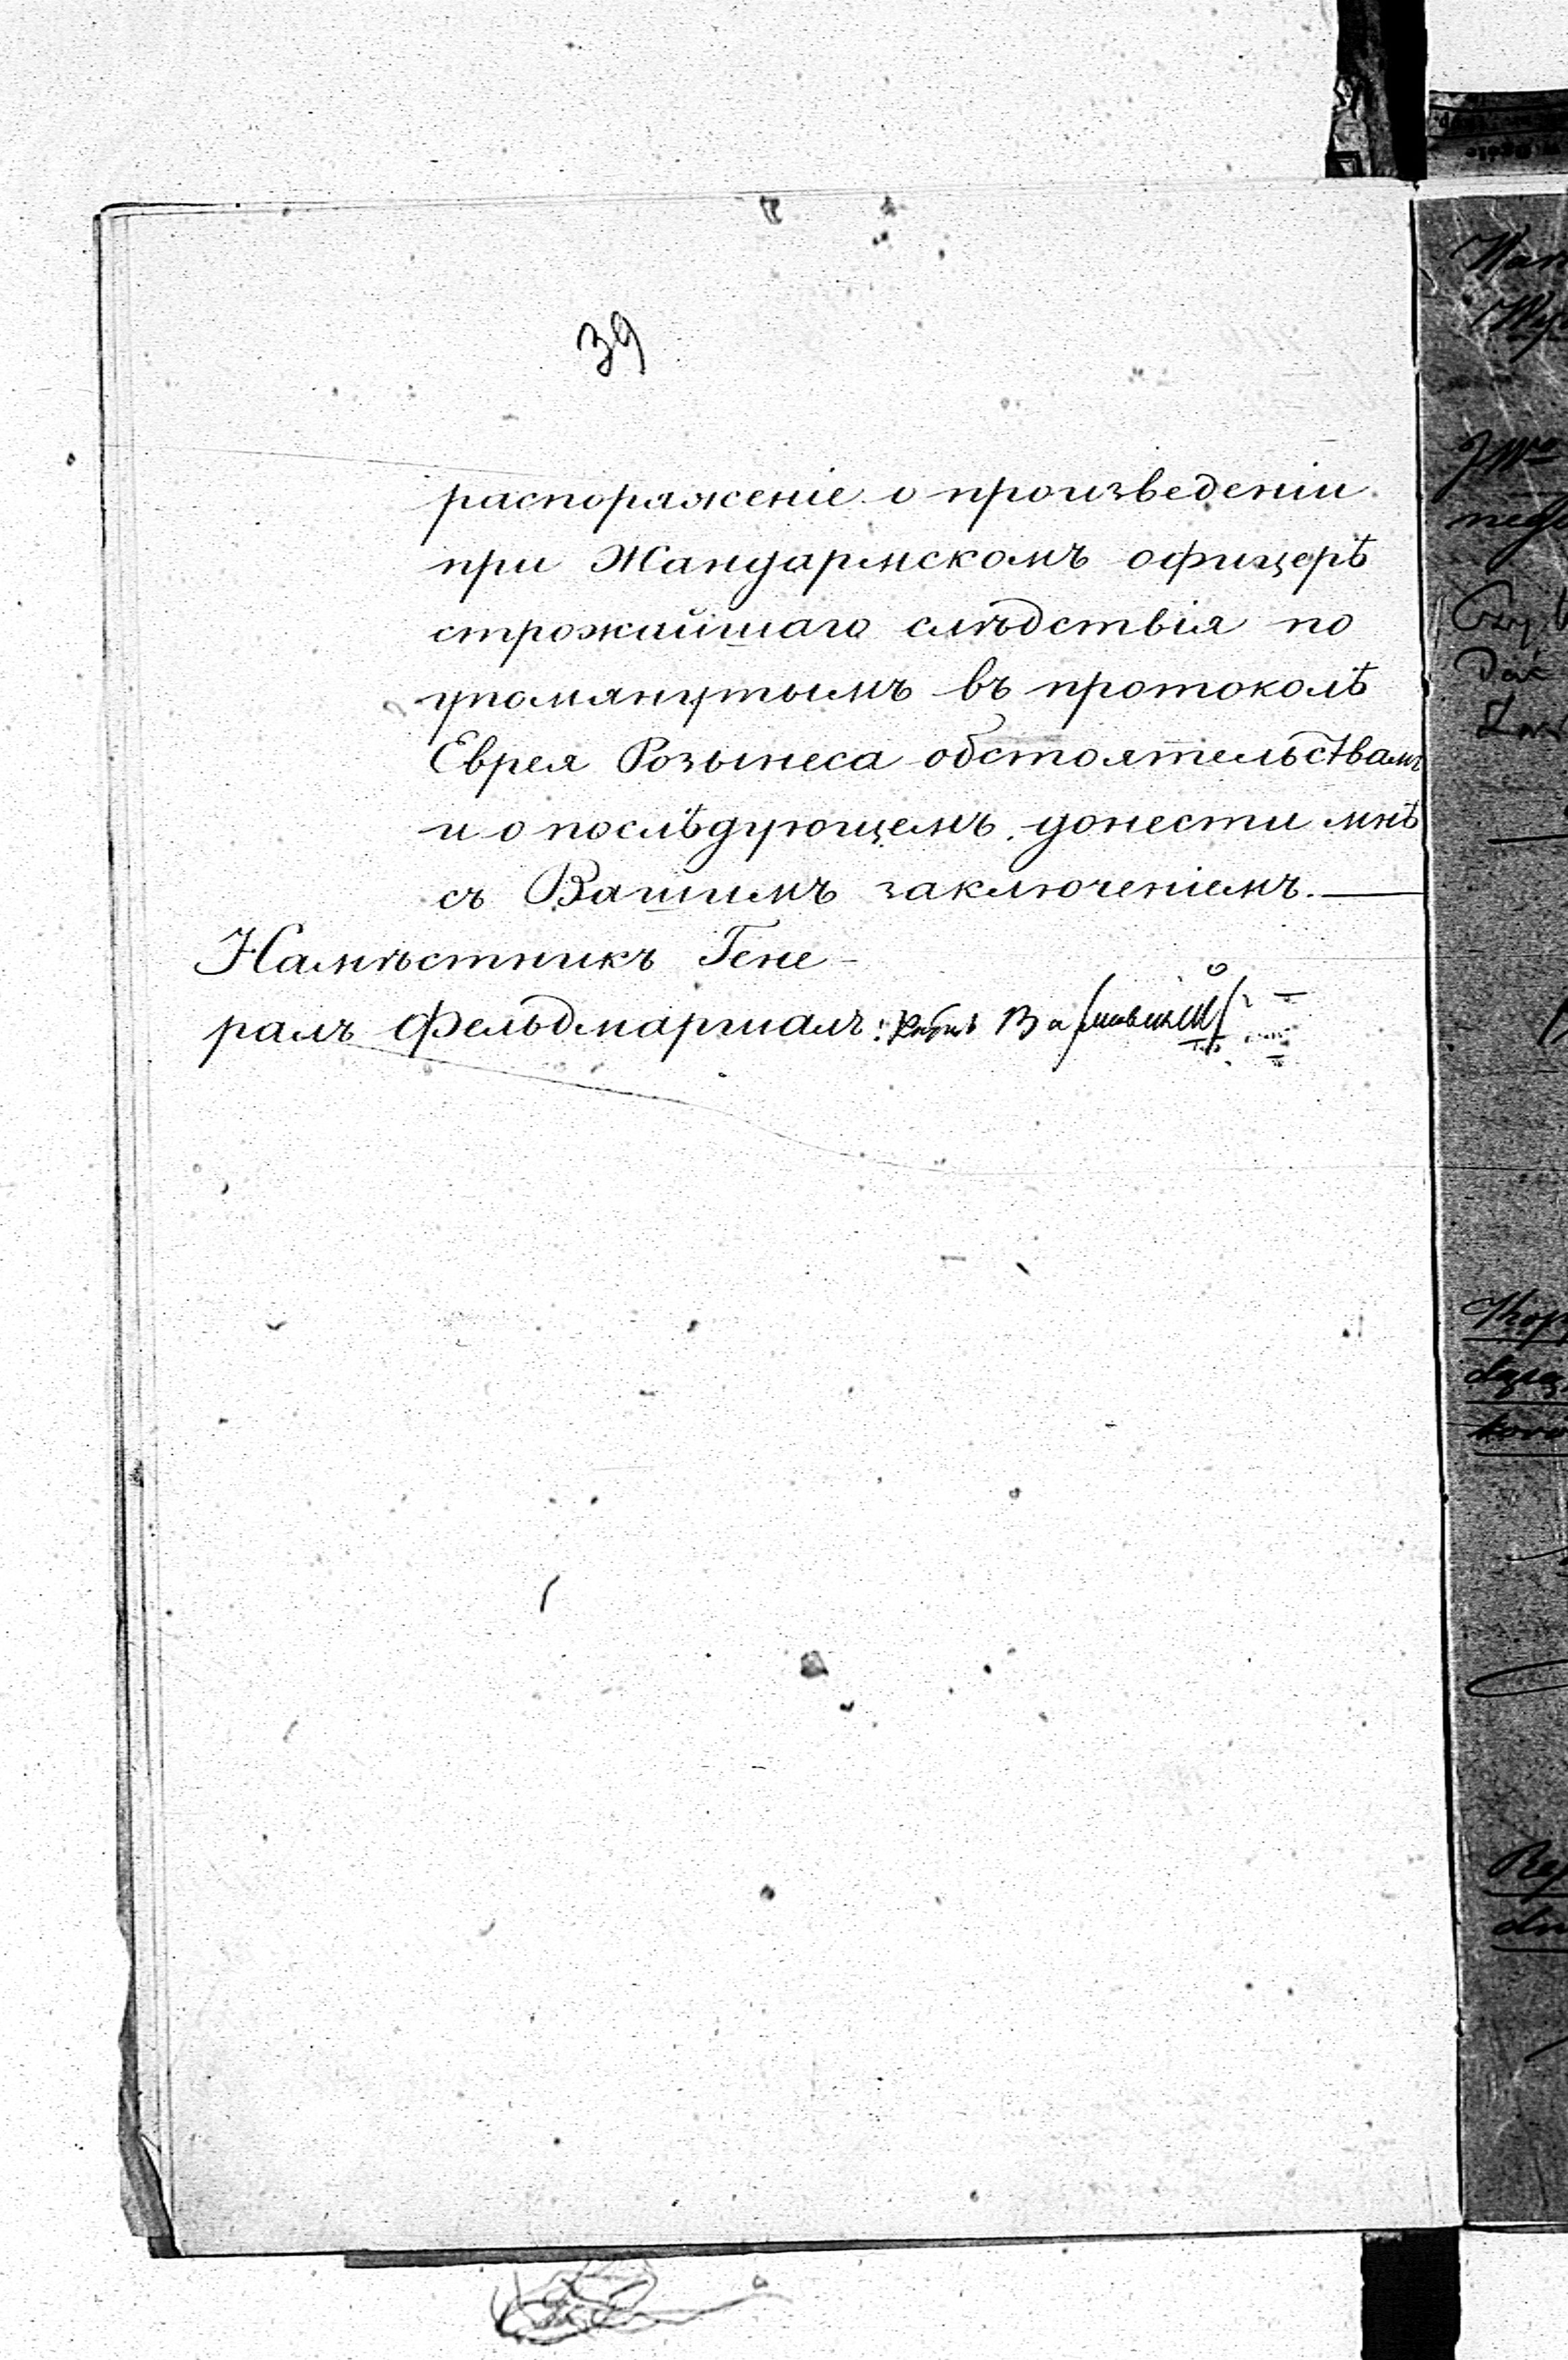 39
распоряженіе о произведеніи
при Жандармскомъ офицерѣ
строжайшаго слѣдствія по
упомянутымъ въ протоколѣ
Еврея Розынеса обстоятельствамъ
и о послѣдующемъ донести мнѣ
съ Вашимъ заключеніемъ.—
Намѣстникъ Гене-
ралъ Фельдмаршалъ: Князь Варшавскій